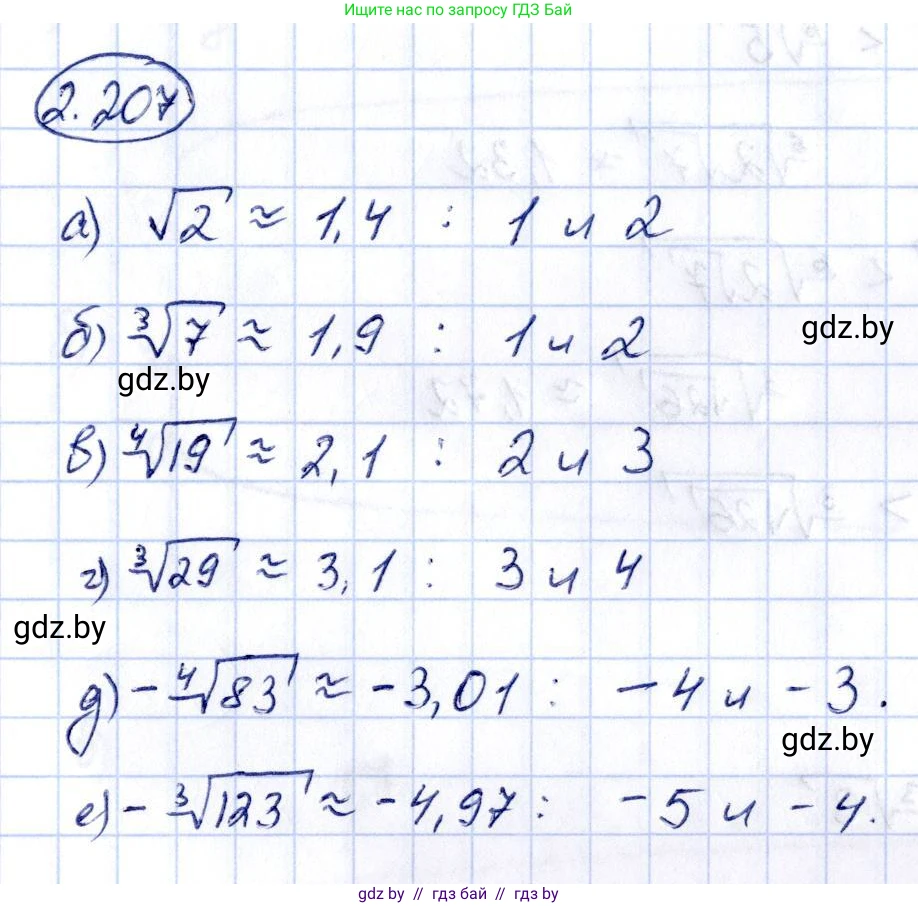 Ищите нас по запросу ГДЗ Бай
2.207
а) √2 ≈ 1,4 : 1 и 2
б) ∛7 ≈ 1,9 : 1 и 2
gdz.by
gdz.by
в) ∜19 ≈ 2,1 : 2 и 3
г) ∛29 ≈ 3,1 : 3 и 4
gdz.by
д) -∜83 ≈ -3,01 : -4 и -3.
gdz.by
е) -∛123 ≈ -4,97 : -5 и -4.
gdz by // гдз бай // гдз by